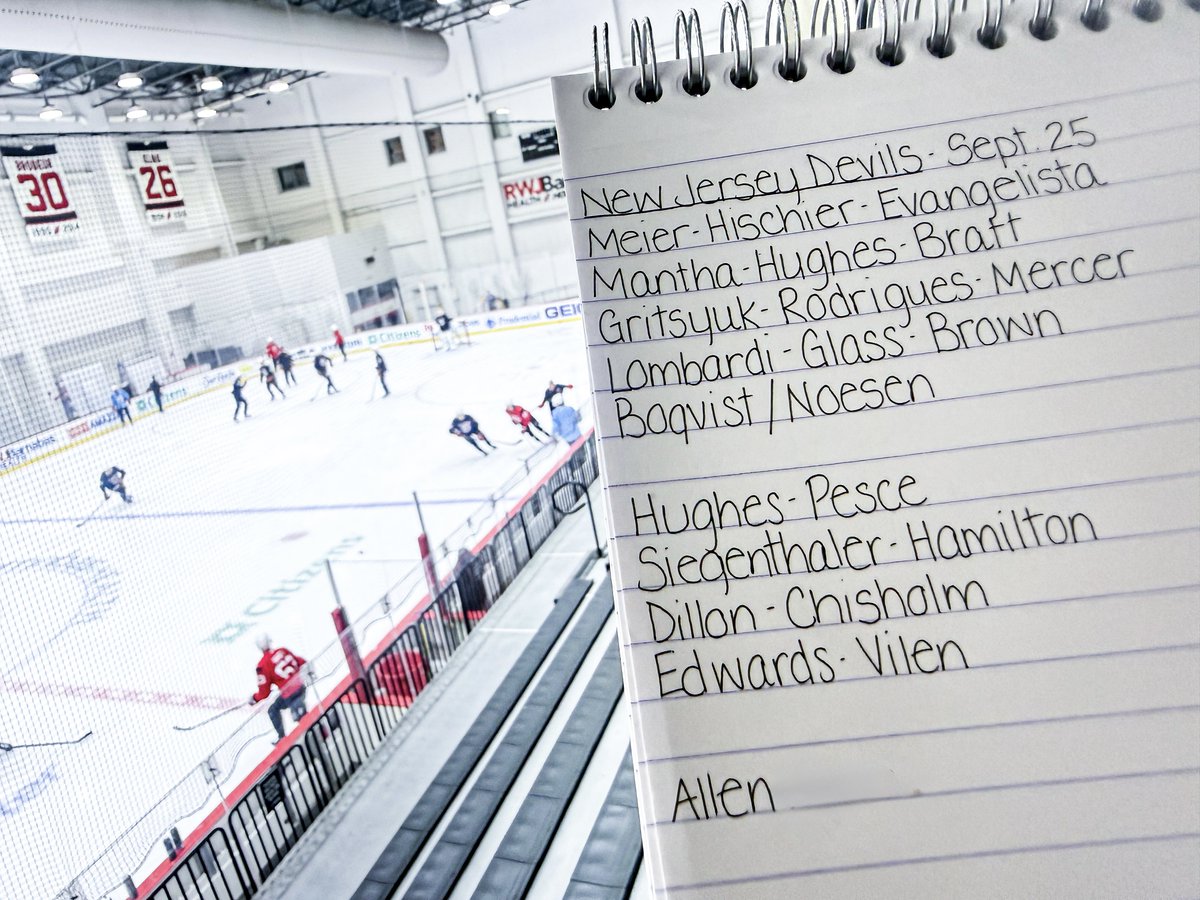 BRODEUR
30
ELIAS
26
RWJBa
GEIC
Prudential
Citizens
Barnabas
New Jersey Devils - Sept. 25
Meier - Hischier - Evangelista
Mantha - Hughes - Bratt
Gritsyuk - Rodrigues - Mercer
Lombardi - Glass - Brown
Boqvist / Noesen
Hughes - Pesce
Siegenthaler - Hamilton
Dillon - Chisholm
Edwards - Vilen
Allen